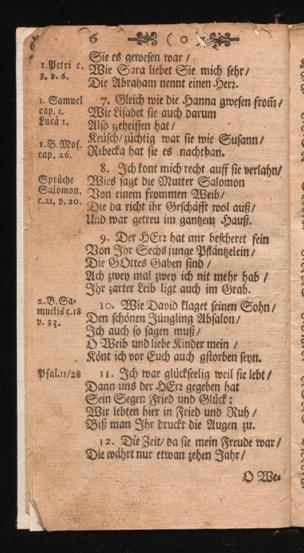 6 ( o )
Sie es gewesen war /
1. Petri c. 3. v. 6.
Wie Sara liebet Sie mich sehr /
Die Abraham nennt einen Herz.
1. Samuel cap. 1. Luca 1.
7. Gleich wie die Hanna gwesen from̃ /
Wie Lisabet sie auch darum
Also geheissen hat /
Keusch / züchtig war sie wie Susann /
1. B. Mos. cap. 26.
Rebecka hat sie es nachthan.
8. Ich kont mich recht auff sie verlahn /
Sprüche Salomon. c. 21, v. 20.
Wies sagt die Mutter Salomon
Von einem frommen Weib /
Die da richt ihr Geschäfft wol auß /
Und war getreu im gantzem Hauß.
9. Der HErz hat mir bescheret fein
Von Ihr Sechs junge Pfläntzelein /
Die GOttes Gaben sind /
Ach zwey mal zwey ich nit mehr hab /
Ihr zarter Leib ligt auch im Grab.
2. B. Samuelis c. 18 v. 33.
10. Wie David klaget seinen Sohn /
Den schönen Jüngling Absalon /
Ich auch so sagen muß /
O Weib und liebe Kinder mein /
Könt ich vor Euch auch gstorben seyn.
Psal. 11/28
11. Ich war glückselig weil sie lebt /
Dann uns der HErz gegeben hat
Sein Segen Fried und Glück:
Wir lebten hier in Fried und Ruh /
Biß man Ihr druckt die Augen zu.
12. Die Zeit / da sie mein Freude war /
Die währt nur etwan zehen Jahr /
O We-